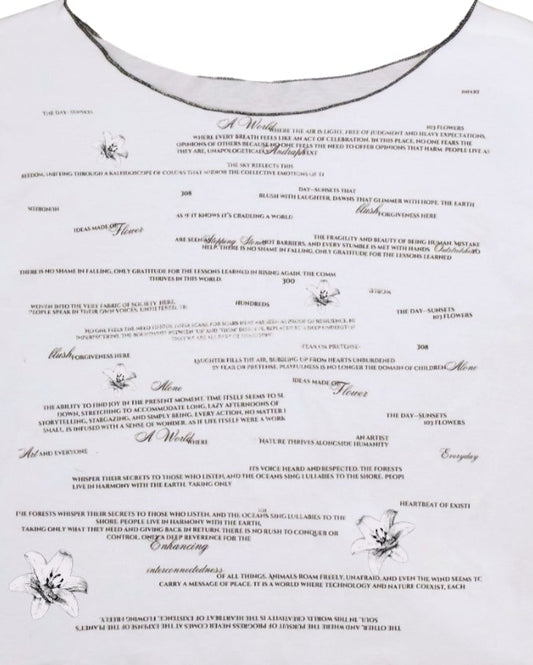 THE DAY—SUNSETS
A World WHERE THE AIR IS LIGHT, FREE OF JUDGMENT AND HEAVY EXPECTATIONS,
103 FLOWERS
WHERE EVERY BREATH FEELS LIKE AN ACT OF CELEBRATION. IN THIS PLACE, NO ONE FEARS THE
OPINIONS OF OTHERS BECAUSE NO ONE FEELS THE NEED TO OFFER OPINIONS THAT HARM. PEOPLE LIVE AS
THEY ARE, UNAPOLOGETICALLY
THE SKY REFLECTS THIS
THROUGH A KALEIDOSCOPE OF COLORS THAT MIRROR THE COLLECTIVE EMOTIONS OF IT
308
DAY—SUNSETS THAT
BLUSH WITH LAUGHTER, DAWNS THAT GLIMMER WITH HOPE. THE EARTH
AS IF IT KNOWS IT'S CRADLING A WORLD
blush FORGIVENESS HERE
IDEAS MADE OF Flower
THE FRAGILITY AND BEAUTY OF BEING HUMAN. MISTAKE
ARE SEEN Stepping Stones NOT BARRIERS, AND EVERY STUMBLE IS MET WITH HANDS Outstretched TO
HELP. THERE IS NO SHAME IN FALLING, ONLY GRATITUDE FOR THE LESSONS LEARNED
THERE IS NO SHAME IN FALLING, ONLY GRATITUDE FOR THE LESSONS LEARNED IN RISING AGAIN. THE COMM
THRIVES IN THIS WORLD.
300
WOVEN INTO THE VERY FABRIC OF SOCIETY. HERE,
PEOPLE SPEAK IN THEIR OWN VOICES, UNFILTERED
HUNDREDS
THE DAY—SUNSETS
103 FLOWERS
YEAR ON PRETENSE
308
blush FORGIVENESS HERE
LAUGHTER FILLS THE AIR, BUBBLING UP FROM HEARTS UNBURDENED
BY FEAR OR PRETENSE. PLAYFULNESS IS NO LONGER THE DOMAIN OF CHILDREN Alone
Alone
IDEAS MADE OF Flower
THE ABILITY TO FIND JOY IN THE PRESENT MOMENT. TIME ITSELF SEEMS TO SL
DOWN, STRETCHING TO ACCOMMODATE LONG, LAZY AFTERNOONS OF
STORYTELLING, STARGAZING, AND SIMPLY BEING. EVERY ACTION, NO MATTER
SMALL, IS INFUSED WITH A SENSE OF WONDER, AS IF LIFE ITSELF WERE A WORK
THE DAY—SUNSETS
103 FLOWERS
A World WHERE
AN ARTIST
NATURE THRIVES ALONGSIDE HUMANITY
Art AND EVERYONE
Everyday
ITS VOICE HEARD AND RESPECTED. THE FORESTS
WHISPER THEIR SECRETS TO THOSE WHO LISTEN, AND THE OCEANS SING LULLABIES TO THE SHORE. PEOPL
LIVE IN HARMONY WITH THE EARTH, TAKING ONLY
HEARTBEAT OF EXISTI
THE FORESTS WHISPER THEIR SECRETS TO THOSE WHO LISTEN, AND THE OCEANS SING LULLABIES TO THE
SHORE. PEOPLE LIVE IN HARMONY WITH THE EARTH,
TAKING ONLY WHAT THEY NEED AND GIVING BACK IN RETURN. THERE IS NO RUSH TO CONQUER OR
CONTROL, ONLY A DEEP REVERENCE FOR THE
Enhancing
interconnectedness
OF ALL THINGS. ANIMALS ROAM FREELY, UNAFRAID, AND EVEN THE WIND SEEMS TC
CARRY A MESSAGE OF PEACE. IT IS A WORLD WHERE TECHNOLOGY AND NATURE COEXIST, EACH
THE OTHER, AND WHERE THE PURSUIT OF PROGRESS NEVER COMES AT THE EXPENSE OF THE PLANET'S
SOUL. IN THIS WORLD, CREATIVITY IS THE HEARTBEAT OF EXISTENCE, FLOWING FREELY,